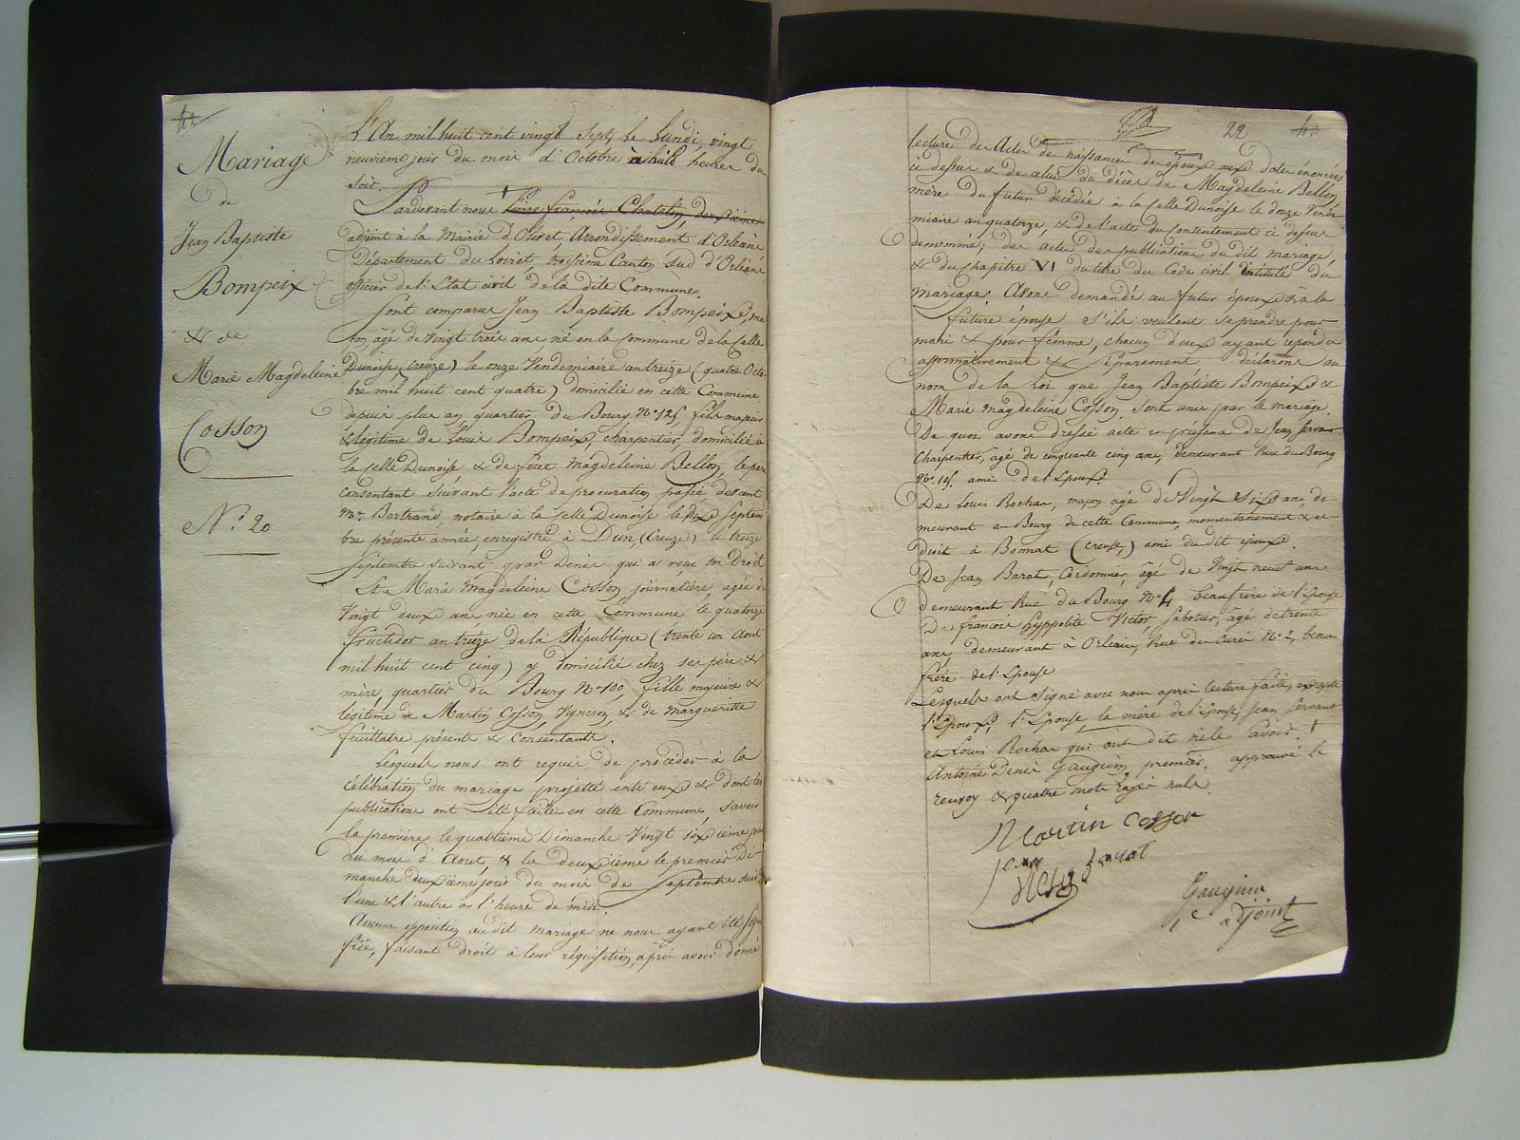 Mariage
de
Jean Baptiste
Bompeix
& de
Marie Magdeleine
Cosson
N.º 20
L'An mil huit cent vingt Sept, le Lundi, vingt
neuvieme jour du mois d'Octobre à huit heures du
soir.
Pardevant nous + Pierre François Chatelin, deuxieme
adjoint à la Mairie d'Olivet, Arrondissement d'Orléans
Département du Loiret, troisieme Canton Sud d'Orléans
officier de l'Etat civil de la dite Commune.
Sont comparus Jean Baptiste Bompeix, ma
çon âgé de vingt trois ans né en la Commune de la Celle
Dunoise (Creuze) le onze Vendemiaire an treize (quatre Octo
bre mil huit cent quatre) domicilié en cette Commune
depuis plus an quartier du Bourg N.º 125, fils majeur
& légitime de Louis Bompeix, charpentier, domicilié à
la Celle Dunoise & de feüe Magdeleine Bellon, le pere
consentant suivant l'acte de procuration passé devant
M.e Bertrand, notaire à la Celle Dunoise le dix Septem
bre présente année, enregistré à Dun, (Creuze) le treize
Septembre suivant par Denis qui a reçu son Droit
Et Marie Magdeleine Cosson, journalière, agée de
Vingt deux ans née en cette Commune le quatorze
fructidor an treize de la République (trente un Aout
mil huit cent cinq) y domiciliée chez ses père &
mère, quartier du Bourg N.º 100, fille majeure &
légitime de Martin Cosson, Vigneron & de Marguerite
feuillatre présents & Consentants.
Lesquels nous ont requis de procéder à la
Célébration du mariage projetté entr'eux & dont les
publications ont été faites en cette Commune, Savoir
la première, le quatrième Dimanche Vingt sixième jour
du mois d'Aout, & la deuxième le premier Di-
manche deuxieme jour du mois de Septembre
l'une & l'autre à l'heure de midi.
Aucune opposition au dit mariage ne nous ayant été signi
fiée, faisant droit à leur réquisition, après avoir donné
22
lecture des Actes de naissance des époux aux dates énoncées
ci dessus & de celui du décès de Magdeleine Bellon,
mère du futur décédée à la Celle Dunoise le douze Vendé
miaire an quatorze, & de l'acte du consentement ci dessus
denommé, des actes des publications du dit mariage,
& du chapitre VI du titre du Code civil intitulé du
mariage. Avons demandé au futur époux & à la
future épouse s'ils veulent se prendre pour
mari & pour femme, chacun d'eux ayant répondu
affirmativement & Séparément déclarons au
nom de la loi que Jean Baptiste Bompeix &
Marie Magdeleine Cosson sont unis par le mariage.
De quoi avons dressé acte en présence de Jean Servant
Charpentier, âgé de cinquante cinq ans, demeurant Rue du Bourg
N.º 15. ami de l'Epoux.
De Louis Rochar, maçon âgé de Vingt Six ans de-
meurant au Bourg de cette Commune, momentanément & de
droit à Bonnat (Creuse) ami du dit époux.
De Jean Barat, Cordonnier, âgé de Vingt neuf ans
demeurant Rue du Bourg N.º 4 beaufrère de l'Epouse
De françois hyppolite Victor, Sabotier, âgé de trente
ans, demeurant à Orléans, Rue des Curés N.º 2, beau
frère de l'Epouse
Lesquels ont signé avec nous après lecture faite, excepté
l'Epoux, l'Epouse, la mère de l'Epouse, Jean Servant
et Louis Rochar qui ont dit ne le Savoir. +
Antoine Denis Gauguin, premier. approuvé le
renvoy & quatre mots rayés nuls.
Martin Cosson
Jean barat
Gauguin
adjoint